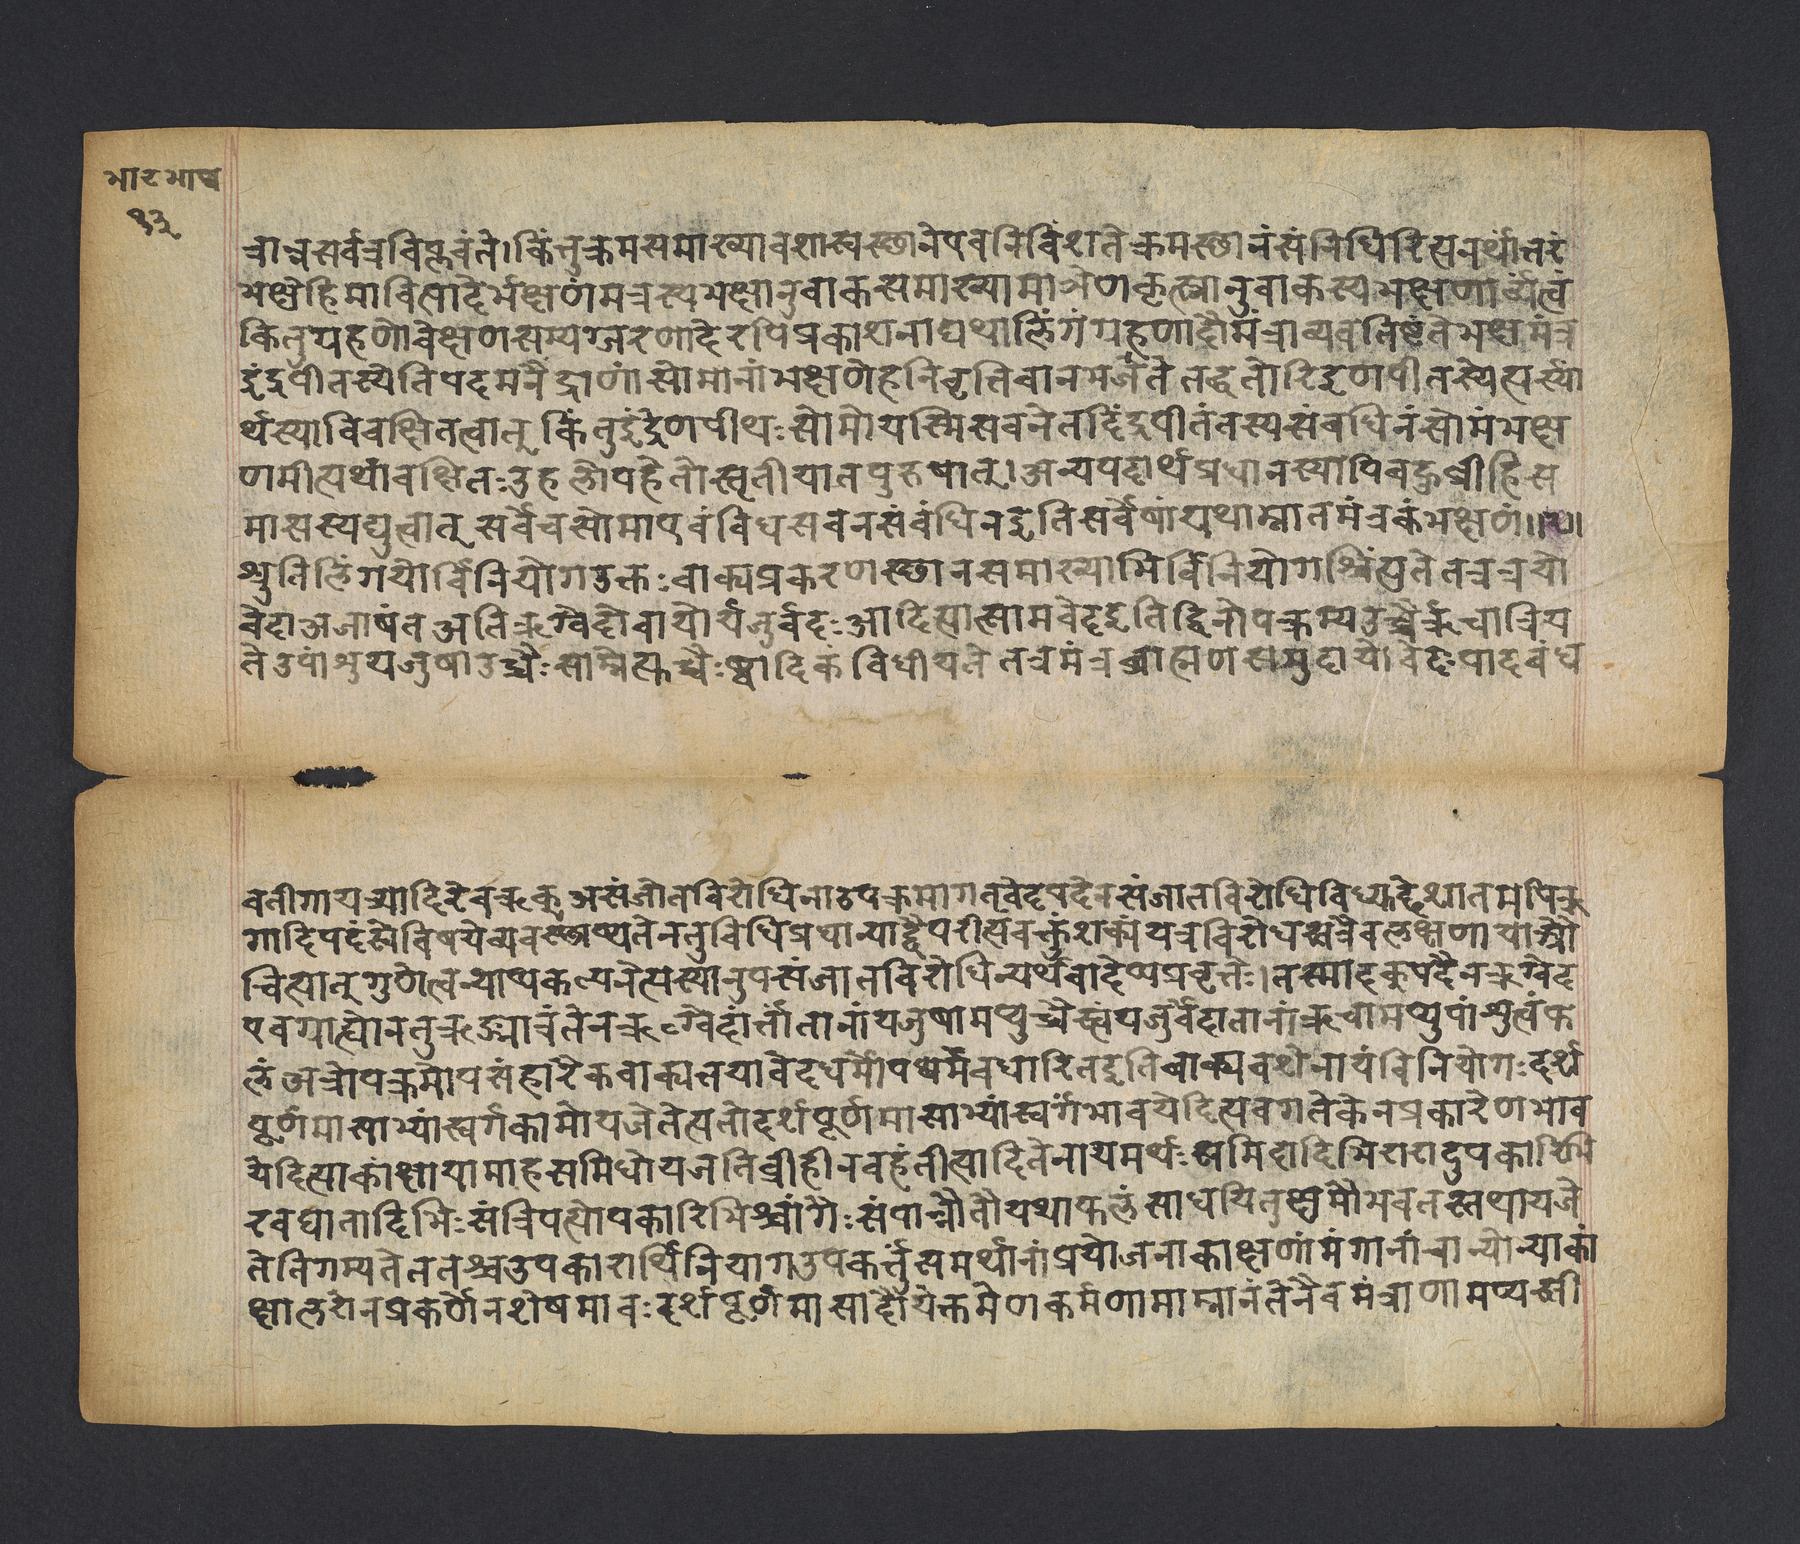 भाटभाष
१३
त्रान्नसर्वत्रविप्लवंते। किंतुक्रमसमाख्यावशात्स्वस्थानेएवनिविंशतेक्रमस्थानंसंनिधिरित्यनर्थांतरं
भक्षेहिमाविशादेर्भक्षणंमंत्रस्यभक्षानुवाकसमाख्यामात्रेणकृत्स्नानुवाकस्यभक्षणार्थत्वं
किंतुग्रहणावेक्षणसम्यग्जरणादेरपिप्रकाशनाद्यथालिंगंग्रहणादौमंत्राव्यवतिष्टंतेभक्षमंत्र
इंद्रपीतस्येतिपदमनैंद्राणांसोमानांभक्षणेहनिवृत्तिवानभजेते तद्वतोरिंद्रेणपीतस्येत्यस्या
र्थस्याविवक्षितत्वात् किंतुइंद्रेणपीथःसोमोयस्मिसवनेतदिंद्रपीतंतस्यसंबधिनंसोमंभक्ष
णमीत्यर्थांवक्षितः तुहलौपहेतौस्तृतीयातपुरुषात्। अन्यपदार्थप्रधानस्यापिबहुव्रीहिस
मासस्यद्युत्वात् सर्वेचसोमाएवंविधसवनसंबंधिनइतिसर्वेषांयथाम्नातमंत्रकंभक्षणं॥२॥
श्रुतिलिंगयोर्विनियोगउक्तःवाक्यप्रकरणस्थानसमाख्याभिर्विनियोगश्चिंत्युतेतत्रत्रयो
वेदाअजाषंतअतिऋग्वेदोवायोर्यजुर्वेदःआदित्यात्सामवेदइतिद्विनोपक्रम्यउच्चैर्ऋचाक्रिय
तेउपांशुयजुषाउच्चैःसाम्नेत्युच्चैःष्ट्वादिकंविधीयते तत्रमंत्रब्राह्मणसमुदायोवेदःपादबंध
वतीगायत्र्यादिरेवऋक् असंजातविरोधिनाउपक्रमागतवेदपदेनसंजातविरोधिविध्युद्देशातमपिऋ
गादिपदंहोविषयेव्यवस्थाप्यतेनतुविधिप्रधान्याद्वैपरीत्यंवक्तुंशक्यंयत्रविरोधस्तत्रैवलक्षणायाऔ
चित्यात् गुणेत्वन्याय्यकल्पनेत्यस्यानुपसंजातविरोधिन्यर्थवादेप्यप्रवृत्तेः। तस्मादृक्पदैनऋग्वेद
एवग्राह्योनतुऋङ्मात्रंतेनऋग्वेदांर्तांतानांयजुषामप्युच्चैस्त्वंयजुर्वेदातानांऋचामप्युपांशुत्वंफ
लंअत्रोपक्रमोपसंहारैकवाक्यतयावेदधर्मोपथ्यमेवधारितइतिवाक्यवशेनायंविनियोगःदर्श
पूर्णमासाभ्यांस्वर्गकामोयजेतेत्यतोदर्शपूर्णमासाभ्यांस्वर्गंभावयेदित्यवगतेकेनप्रकारेणभाव
येदित्याकांक्षायामाहसमिधोयजतिव्रीहीनवहंतीत्यादितेनायमर्थःसमिदादिभिरारादुपकारिभि
रवघातादिभिःसंनिपत्योपकारिभिश्चांगैःसंपान्नौतौयथाफलंसाधयितुंक्षमौभवतस्तथायजे
तेतिगम्यतेततश्चउपकारार्थिनियागउपकर्त्तुंसमर्थानांप्रयोजनाकाक्षणांमंगानांचान्योन्याकां
क्षालक्षेनप्रकर्णेनशेषभावःदर्शपूर्णमासादौयेक्तमेणकर्मणामाम्नानंतेनैवमंत्राणामप्यस्ती